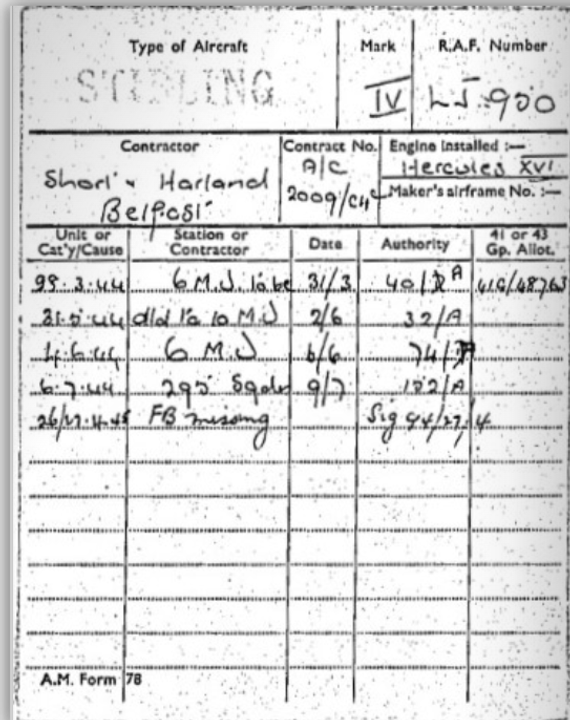 Type of Aircraft Mark R.A.F. Number
STIRLING IV LJ.950
Contractor Contract No. Engine Installed :—
Short & Harland A/C Hercules XVI
Belfast 2009/C4C Maker's airframe No. :—
Unit or Station or Date Authority 41 or 43
Cat'y/Cause Contractor Gp. Allot.
.3.44 6 M.U. 31/3 40/ A 41G/48763
31.5.44 dld to 10 M.U 2/6 32/A
4.6.44 6 M U 6/6 74/
6.7.44 295 Sqdn 9/7 102/A
26/27.4.45 FB missing Sig 94/27/4
A.M. Form 78